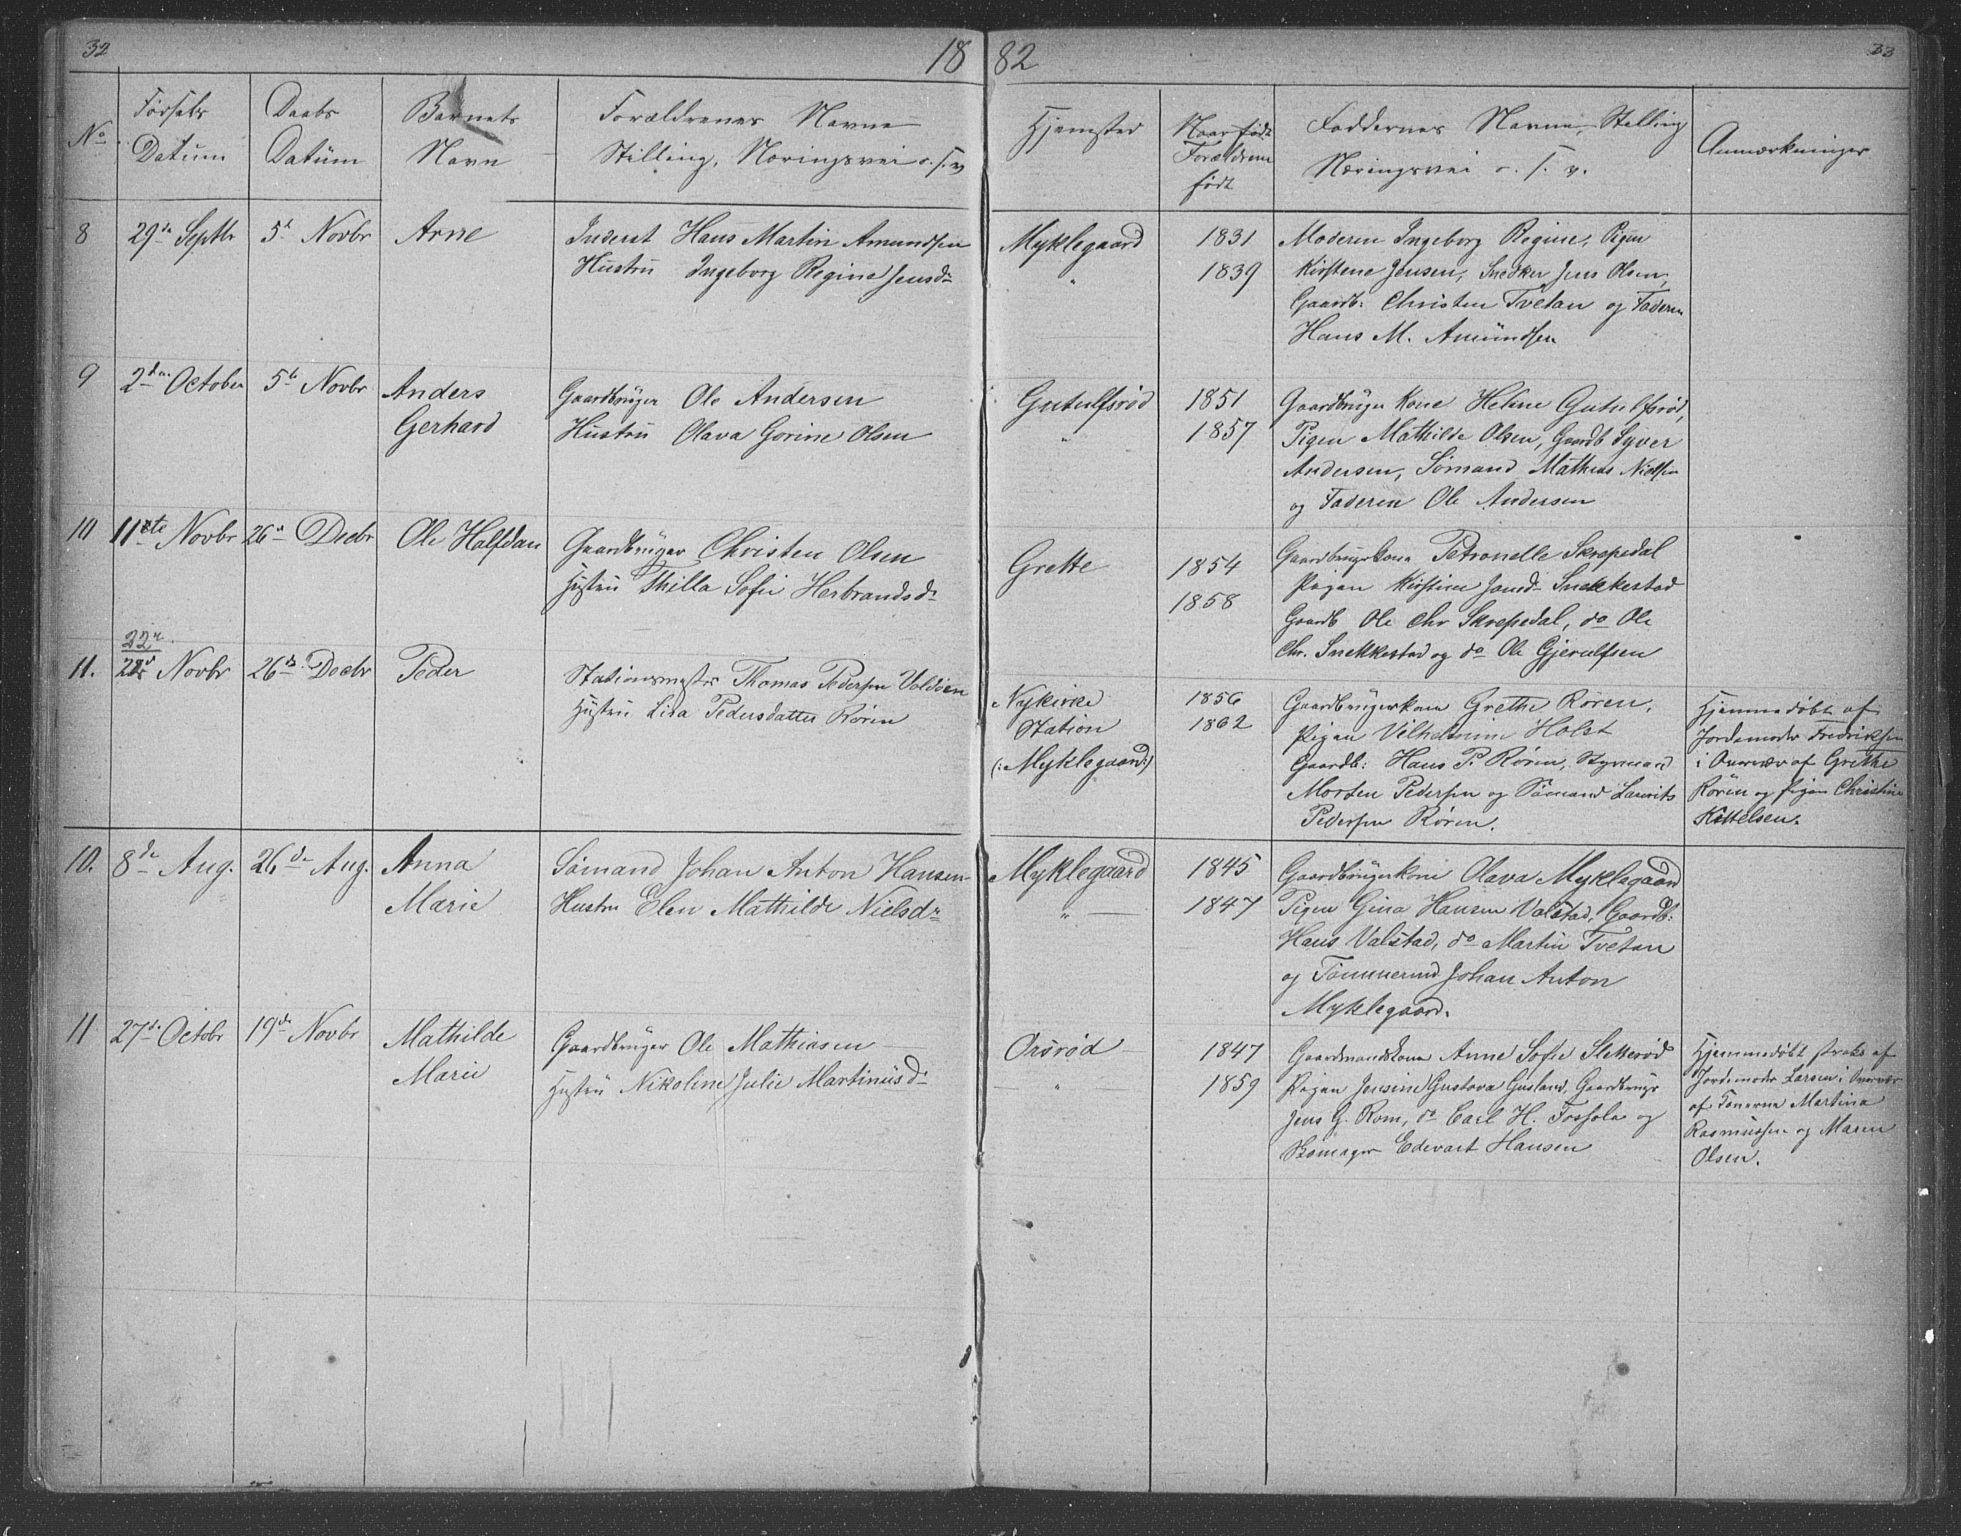 32
18 82
33
No
Fødsels Datum
Daabs Datum
Barnets Navn
Forældrenes Navne Stilling, Næringsvei o. s. v.
Hjemsted
Naar født Forældrene født
Faddernes Navne, Stilling Næringsvei o. s. v.
Anmærkninger
8
29de Septbr
5t Novbr
Arne
Inderst Hans Martin Amundsen
Hustru Ingeborg Regine Jensdr
Myklegaard
"
1831
1839
Moderen Ingeborg Regine, Pigen
Kirstene Jensen, Snedker Jens Olsen,
Gaardb: Christen Tvetan og Faderen
Hans M. Amundsen
9
2den October
5te Novbr
Anders
Gerhard
Gaardbruger Ole Andersen
Hustru Olava Gorine Olsen
Gutulfsrød
"
1851
1857
Gaardbruger Kone Helene Gutulfsrød,
Pigen Mathilde Olsen, Gaardb Syver
Andersen, Sømand Mathias Nielsen
og Faderen Ole Andersen
10
11te Novbr
26de Decbr
Ole Halfdan
Gaardbruger Christen Olsen
Hustru Thilla Sofie Herbrandsdr
Grette
1854
1858
Gaardbrugerkone Petronelle Skrepedal
Pigen Kirstine Jensd. Snekkestad
Gaardb Ole Chr Skrepedal, do Ole
Chr. Snekkestad og do Ole Gjerulfsen
11.
22de
Novbr
26de Decbr
Peder
Stationsmester Thomas Pedersen Valdøen
Hustru Lisa Pedersdatter Røren
Nykirke
Station
(: Myklegaard :)
1856
1862
Gaardbrugerkone Grethe Røren,
Pigen Vilhelmine Holst
Gaardb: Hans P. Røren, Styrmand
Morten Pedersen og Sømand Laurits
Pedersen Røren.
Hjemmedøbt af
Jordemoder Fredriksen
i Overvær af Grethe
Røren og pigen Christine
Kittelsen.
10.
8de Aug.
26de Aug.
Anna
Marie
Sømand Johan Anton Hansen
Hustru Elen Mathilde Nielsdr
Myklegaard
" —
1845
1847
Gaardbrugerkone Olava Myklegaard
Pigen Gina Hansen Valstad, Gaardb:
Hans Valstad, do Martin Tvetan
og Tømmermd Johan Anton
Myklegaard.
11
27de Octobr
19de Novbr
Mathilde
Marie
Gaardbruger Ole Mathiasen
Hustru Nikoline Julie Martinusdr
Orsrød
"
1847
1859
Gaardmandskone Anne Sofie Sletterød
Pigen Jensine Gustava Gusland, Gaardbruger
Jens G. Rom, do Carl H. Fossola og
Skomager Edevart Hansen
Hjemmedøbt straks af
Jordemoder Larsen i Overvær
af Konerne Martina
Rasmussen og Maren
Olsen.